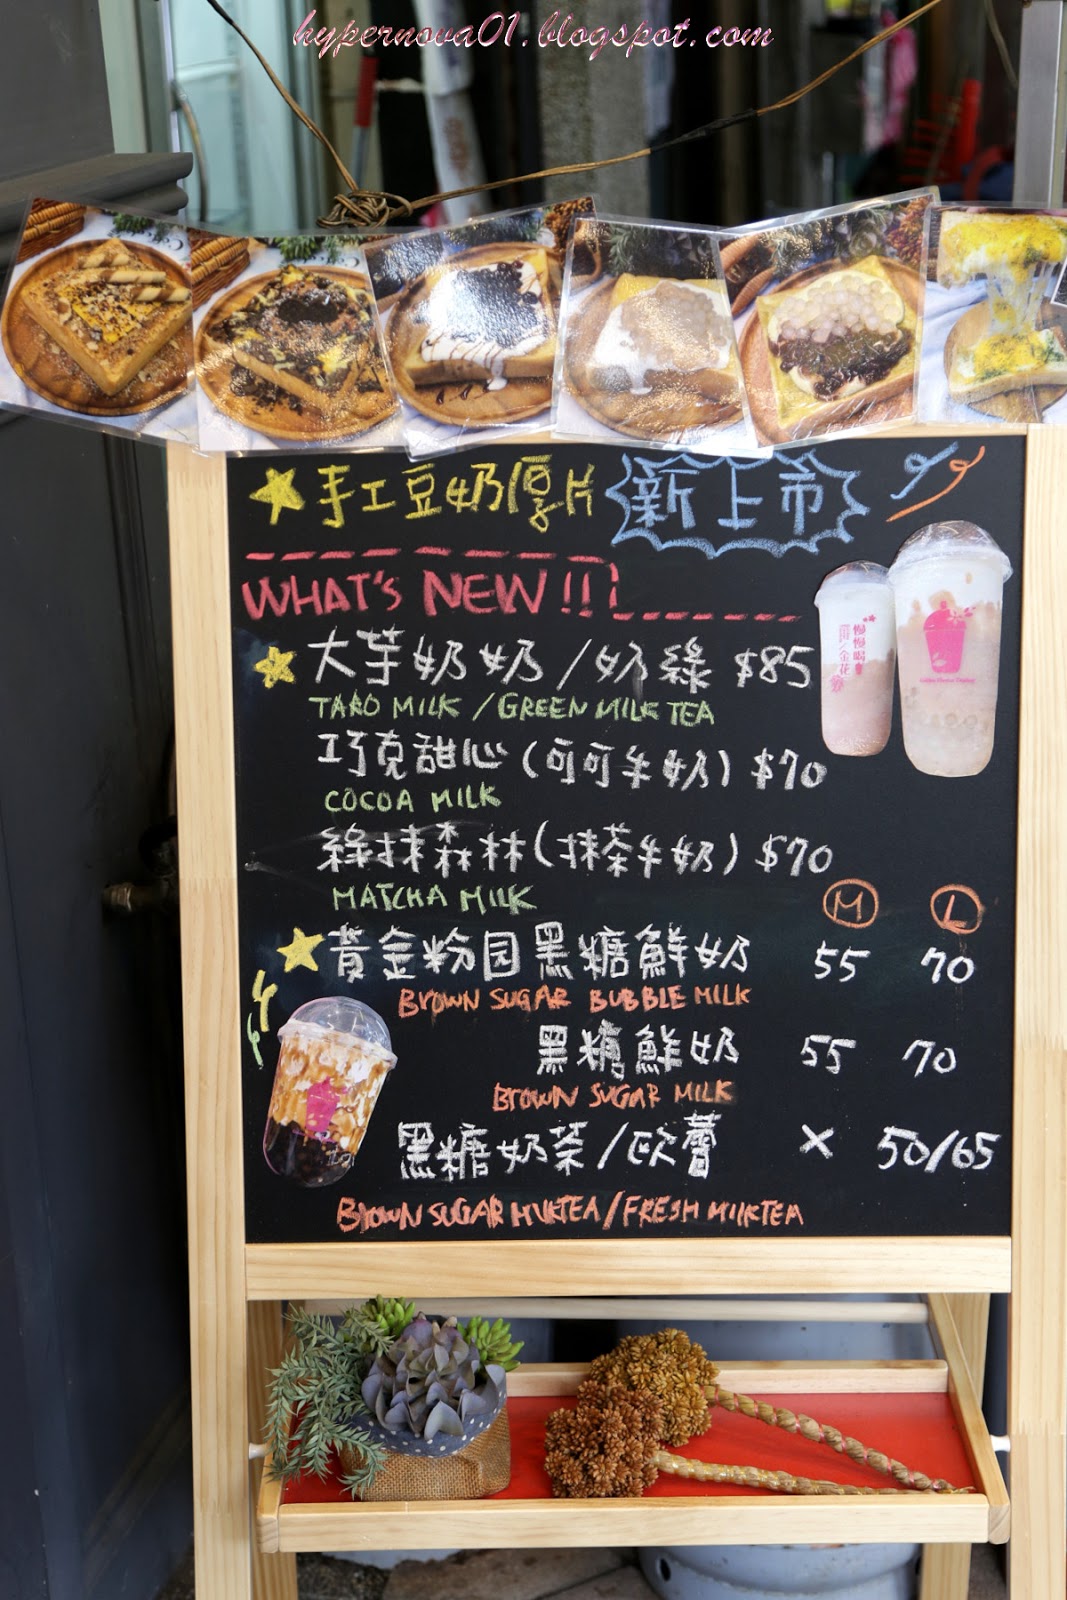 hypernova01.blogspot.com
手工豆奶厚片 新上市
WHAT'S NEW!!
大芋奶奶/奶綠 $85
TARO MILK / GREEN MILK TEA
巧克甜心(可可牛奶) $70
COCOA MILK
綠抹森林(抹茶牛奶) $70
MATCHA MILK
M L
黃金粉圆黑糖鮮奶 55 70
BROWN SUGAR BUBBLE MILK
黑糖鮮奶 55 70
BROWN SUGAR MILK
黑糖奶茶/欧蕾 X 50/65
BROWN SUGAR MILKTEA/FRESH MILKTEA
慢慢喝
金花